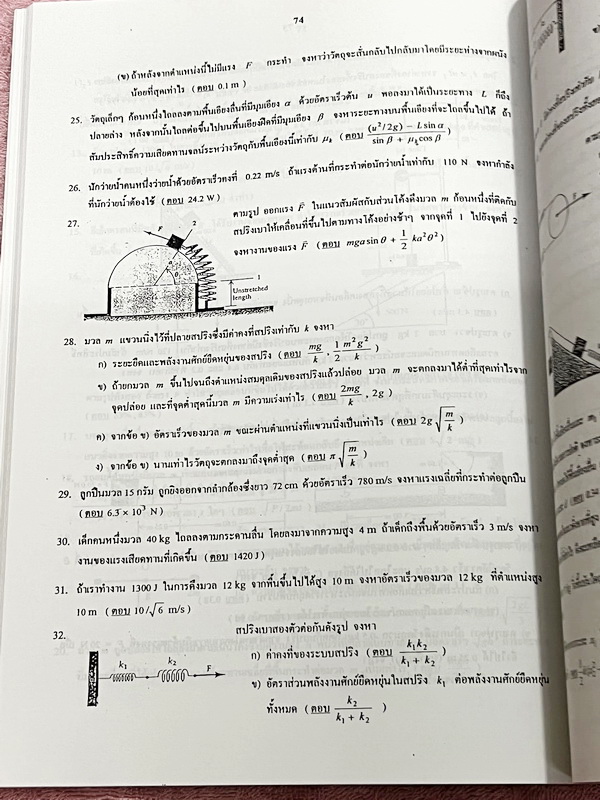 74
(ข) ถ้าหลังจากตำแหน่งนี้ไม่มีแรง F กระทำ จงหาว่าวัตถุจะสั่นกลับไปกลับมาโดยมีระยะห่างจากผนัง
น้อยที่สุดเท่าไร ( ตอบ 0.1 m )
25. วัตถุเล็กๆ ก้อนหนึ่งไถลลงตามพื้นเอียงลื่นที่มีมุมเอียง α ด้วยอัตราเร็วต้น u พอลงมาได้เป็นระยะทาง L ก็ถึง
ปลายล่าง หลังจากนั้นไถลต่อขึ้นไปบนพื้นเอียงฝืดที่มีมุมเอียง β จงหาระยะทางบนพื้นเอียงที่จะไถลขึ้นไปได้ ถ้า
สัมประสิทธิ์ความเสียดทานจลน์ระหว่างวัตถุกับพื้นเอียงนี้เท่ากับ μk ( ตอบ (u²/2g) − L sin α / sin β + μk cos β )
26. นักว่ายน้ำคนหนึ่งว่ายน้ำด้วยอัตราเร็วคงที่ 0.22 m/s ถ้าแรงต้านที่กระทำต่อนักว่ายน้ำเท่ากับ 110 N จงหากำลัง
ที่นักว่ายน้ำต้องใช้ ( ตอบ 24.2 W )
27. ตามรูป ออกแรง F ในแนวสัมผัสกับส่วนโค้งดึงมวล m ก้อนหนึ่งที่ติดกับ
สปริงเบาให้เคลื่อนที่ขึ้นไปตามทางโค้งอย่างช้าๆ จากจุดที่ 1 ไปยังจุดที่ 2
จงหางานของแรง F ( ตอบ mga sin θ + 1/2 ka²θ² )
F
2
a
θ
1
Unstretched
length
28. มวล m แขวนนิ่งไว้ที่ปลายสปริงซึ่งมีค่าคงที่สปริงเท่ากับ k จงหา
ก) ระยะยืดและพลังงานศักย์ยืดหยุ่นของสปริง ( ตอบ mg/k , 1/2 m²g²/k )
ข) ถ้ายกมวล m ขึ้นไปจนถึงตำแหน่งสมดุลเดิมของสปริงแล้วปล่อย มวล m จะตกลงมาได้ต่ำที่สุดเท่าไรจาก
จุดปล่อย และที่จุดต่ำสุดนี้มวล m มีความเร่งเท่าไร ( ตอบ 2mg/k , 2g )
ค) จากข้อ ข) อัตราเร็วของมวล m ขณะผ่านตำแหน่งที่แขวนนิ่งเป็นเท่าไร ( ตอบ 2g √(m/k) )
ง) จากข้อ ข) นานเท่าไรวัตถุจะตกลงมาถึงจุดต่ำสุด ( ตอบ π √(m/k) )
29. ลูกปืนมวล 15 กรัม ถูกยิงออกจากลำกล้องซึ่งยาว 72 cm ด้วยอัตราเร็ว 780 m/s จงหาแรงเฉลี่ยที่กระทำต่อลูกปืน
( ตอบ 6.3 × 10³ N )
30. เด็กคนหนึ่งมวล 40 kg ไถลลงตามกระดานลื่น โดยลงมาจากความสูง 4 m ถ้าเด็กถึงพื้นด้วยอัตราเร็ว 3 m/s จงหา
งานของแรงเสียดทานที่เกิดขึ้น ( ตอบ 1420 J )
31. ถ้าเราทำงาน 1300 J ในการดึงมวล 12 kg จากพื้นขึ้นไปได้สูง 10 m จงหาอัตราเร็วของมวล 12 kg ที่ตำแหน่งสูง
10 m ( ตอบ 10/√6 m/s )
32. สปริงเบาสองตัวต่อกันดังรูป จงหา
k₁
k₂
F
ก) ค่าคงที่ของระบบสปริง ( ตอบ k₁k₂ / k₁ + k₂ )
ข) อัตราส่วนพลังงานศักย์ยืดหยุ่นในสปริง k₁ ต่อพลังงานศักย์ยืดหยุ่น
ทั้งหมด ( ตอบ k₂ / k₁ + k₂ )